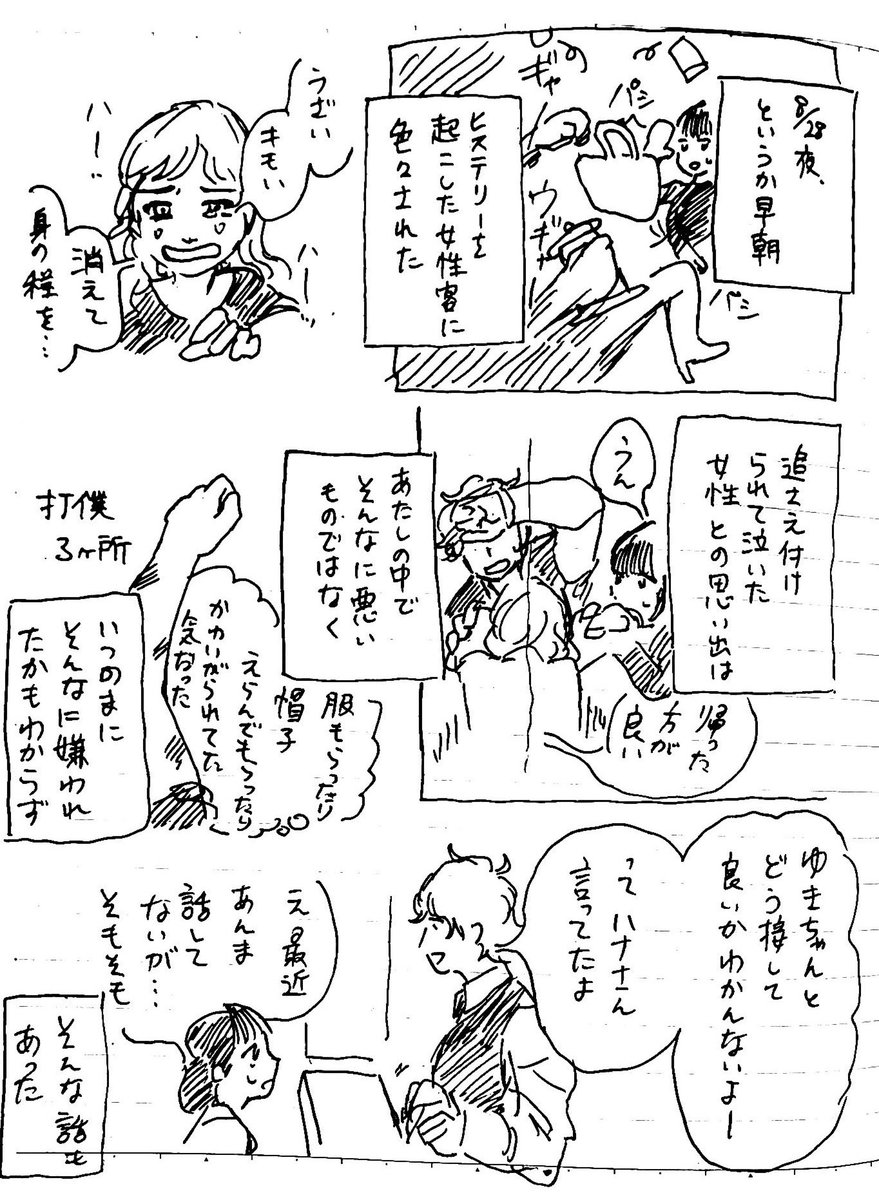 8/28夜、
というか早朝
ギャ
パシ
ウギャ
パシ
ヒステリーを
起こした女性客に
色々された
うざい
キモい
ハー
ハー
消えて
身の程を…
追さえ付け
られて泣いた
女性との思い出は
うん
帰った
方が
良い
あたしの中で
そんなに悪い
ものではなく
服もらったり
帽子
えらんでもらったり
かわいがられてた
気なった
打僕
3ヶ所
いつのまに
そんなに嫌われ
たかもわからず
ゆきちゃんと
どう接して
良いかわかんないよー
ってハナさん
言ってたよ
え最近
あんま
話して
ないが…
そもそも
そんな話も
あった